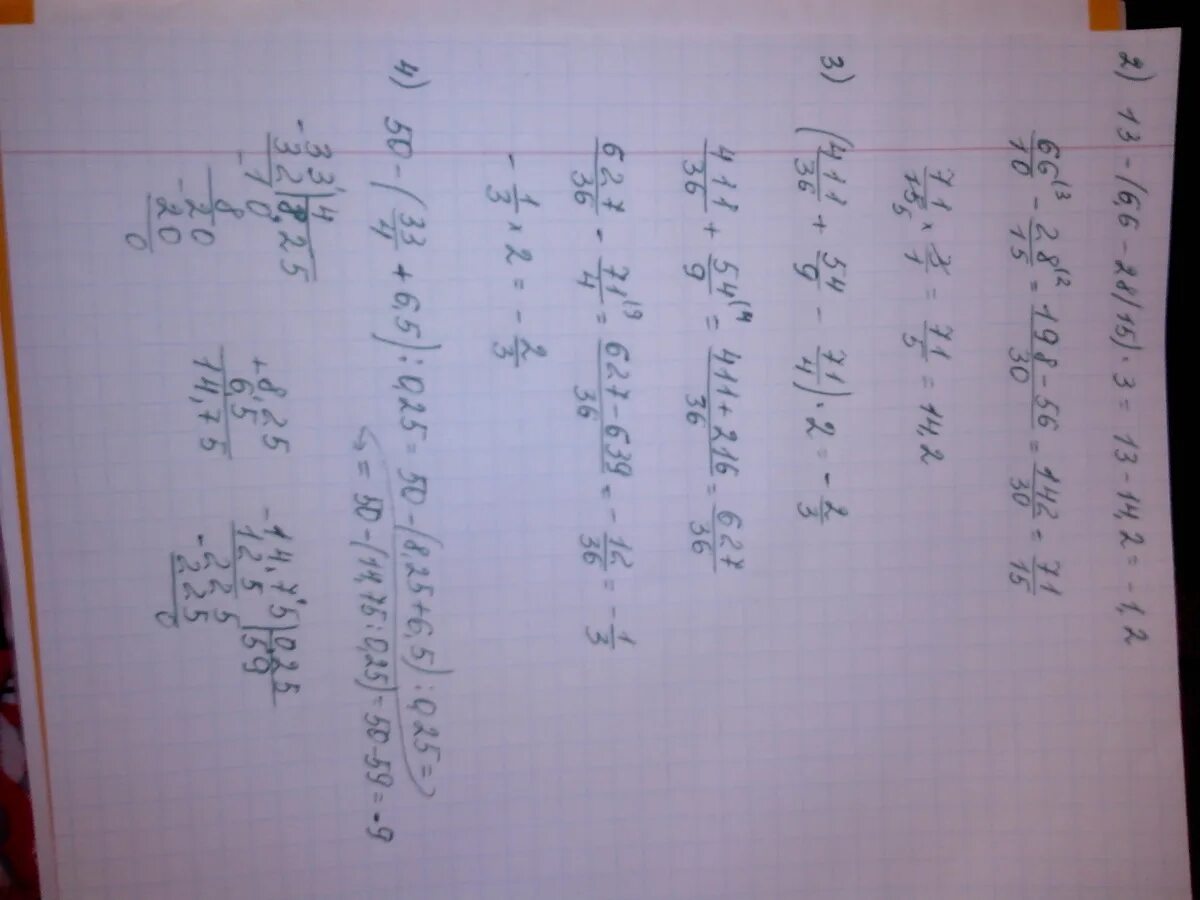 2) 13 - (6,6 - 28/15) · 3 = 13 - 14,2 = -1,2
66/10 (3 - 28/15 (2 = 198-56/30 = 142/30 = 71/15
71/15 5 × 3/1 = 71/5 = 14,2
3) (411/36 + 54/9 - 71/4) · 2 = - 2/3
411/36 + 54/9 (4 = 411+216/36 = 627/36
627/36 - 71/4 (9 = 627-639/36 = - 12/36 = - 1/3
- 1/3 × 2 = - 2/3
4) 50 - (33/4 + 6,5) : 0,25 = 50 - (8,25 + 6,5) : 0,25 =
= 50 - (14,75 : 0,25) = 50 - 59 = -9
-33 | 4
32 | 8,25
-10
8
-20
20
0
+8,25
6,5
14,75
-14,75 | 0,25
125 | 59
-225
225
0